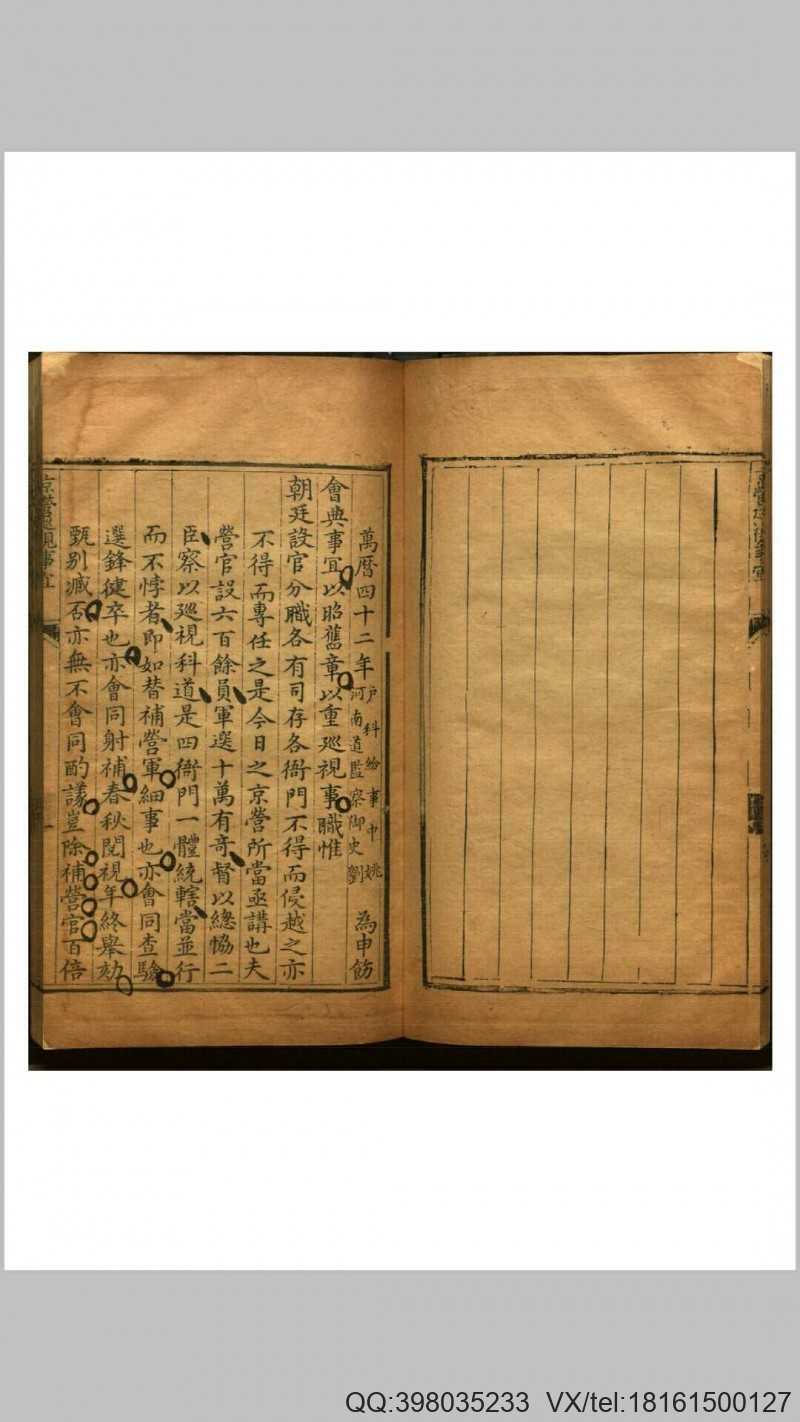 萬曆四十二年戶科給事中姚河南道監察御史劉為申飭
會典事宜以昭舊章以重巡視事職惟
朝廷設官分職各有司存各衙門不得而侵越之亦
不得而專任之是今日之京營所當亟講也夫
營官設六百餘員軍選十萬有奇督以總協二
臣察以巡視科道是四衙門一體統轄當並行
而不悖者即如替補營軍細事也亦會同查驗
選鋒徤卒也亦會同射補春秋閱視年終舉劾
甄別臧否亦無不會同酌議豈除補營官百倍
京營巡視事宜
QQ:398035233 VX/tel:18161500127